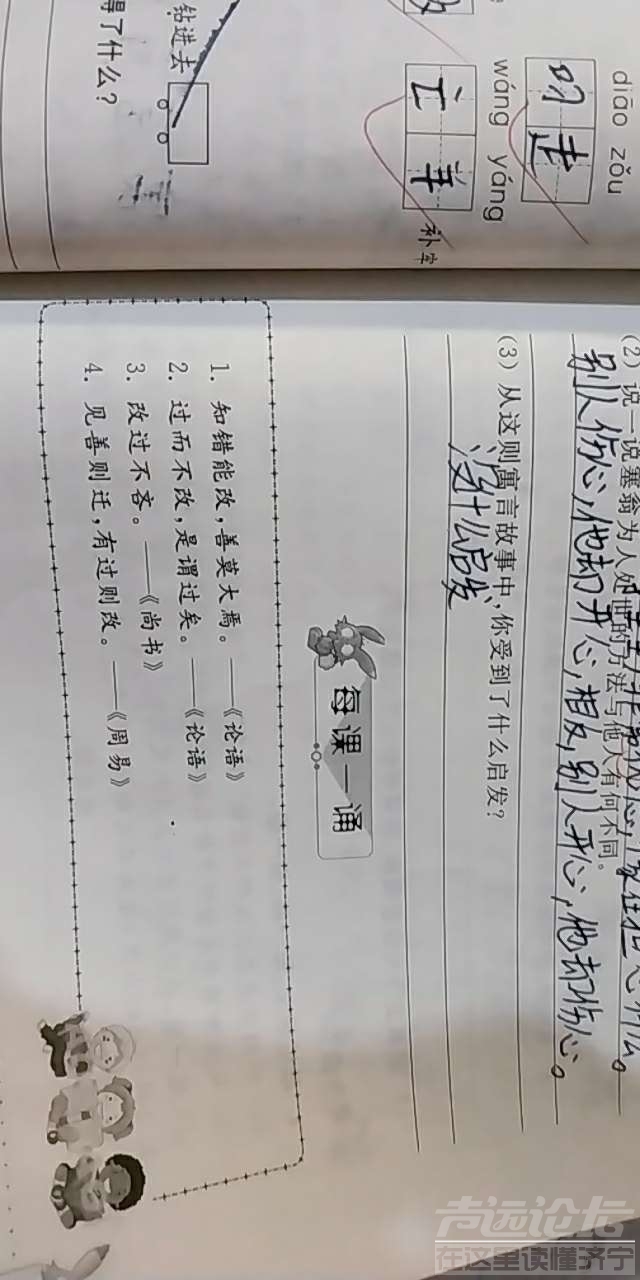 钻进去
得了什么？
diāo zǒu
叼走
wáng yáng
亡羊
补牢
(2) 说一说塞翁为人处世的方法与他人有何不同。
别人伤心，他却开心，相反，别人开心，他却伤心。
(3) 从这则寓言故事中，你受到了什么启发？
没什么启发
每课一诵
1. 知错能改，善莫大焉。——《论语》
2. 过而不改，是谓过矣。——《论语》
3. 改过不吝。——《尚书》
4. 见善则迁，有过则改。——《周易》
声远论坛
在这里读懂济宁